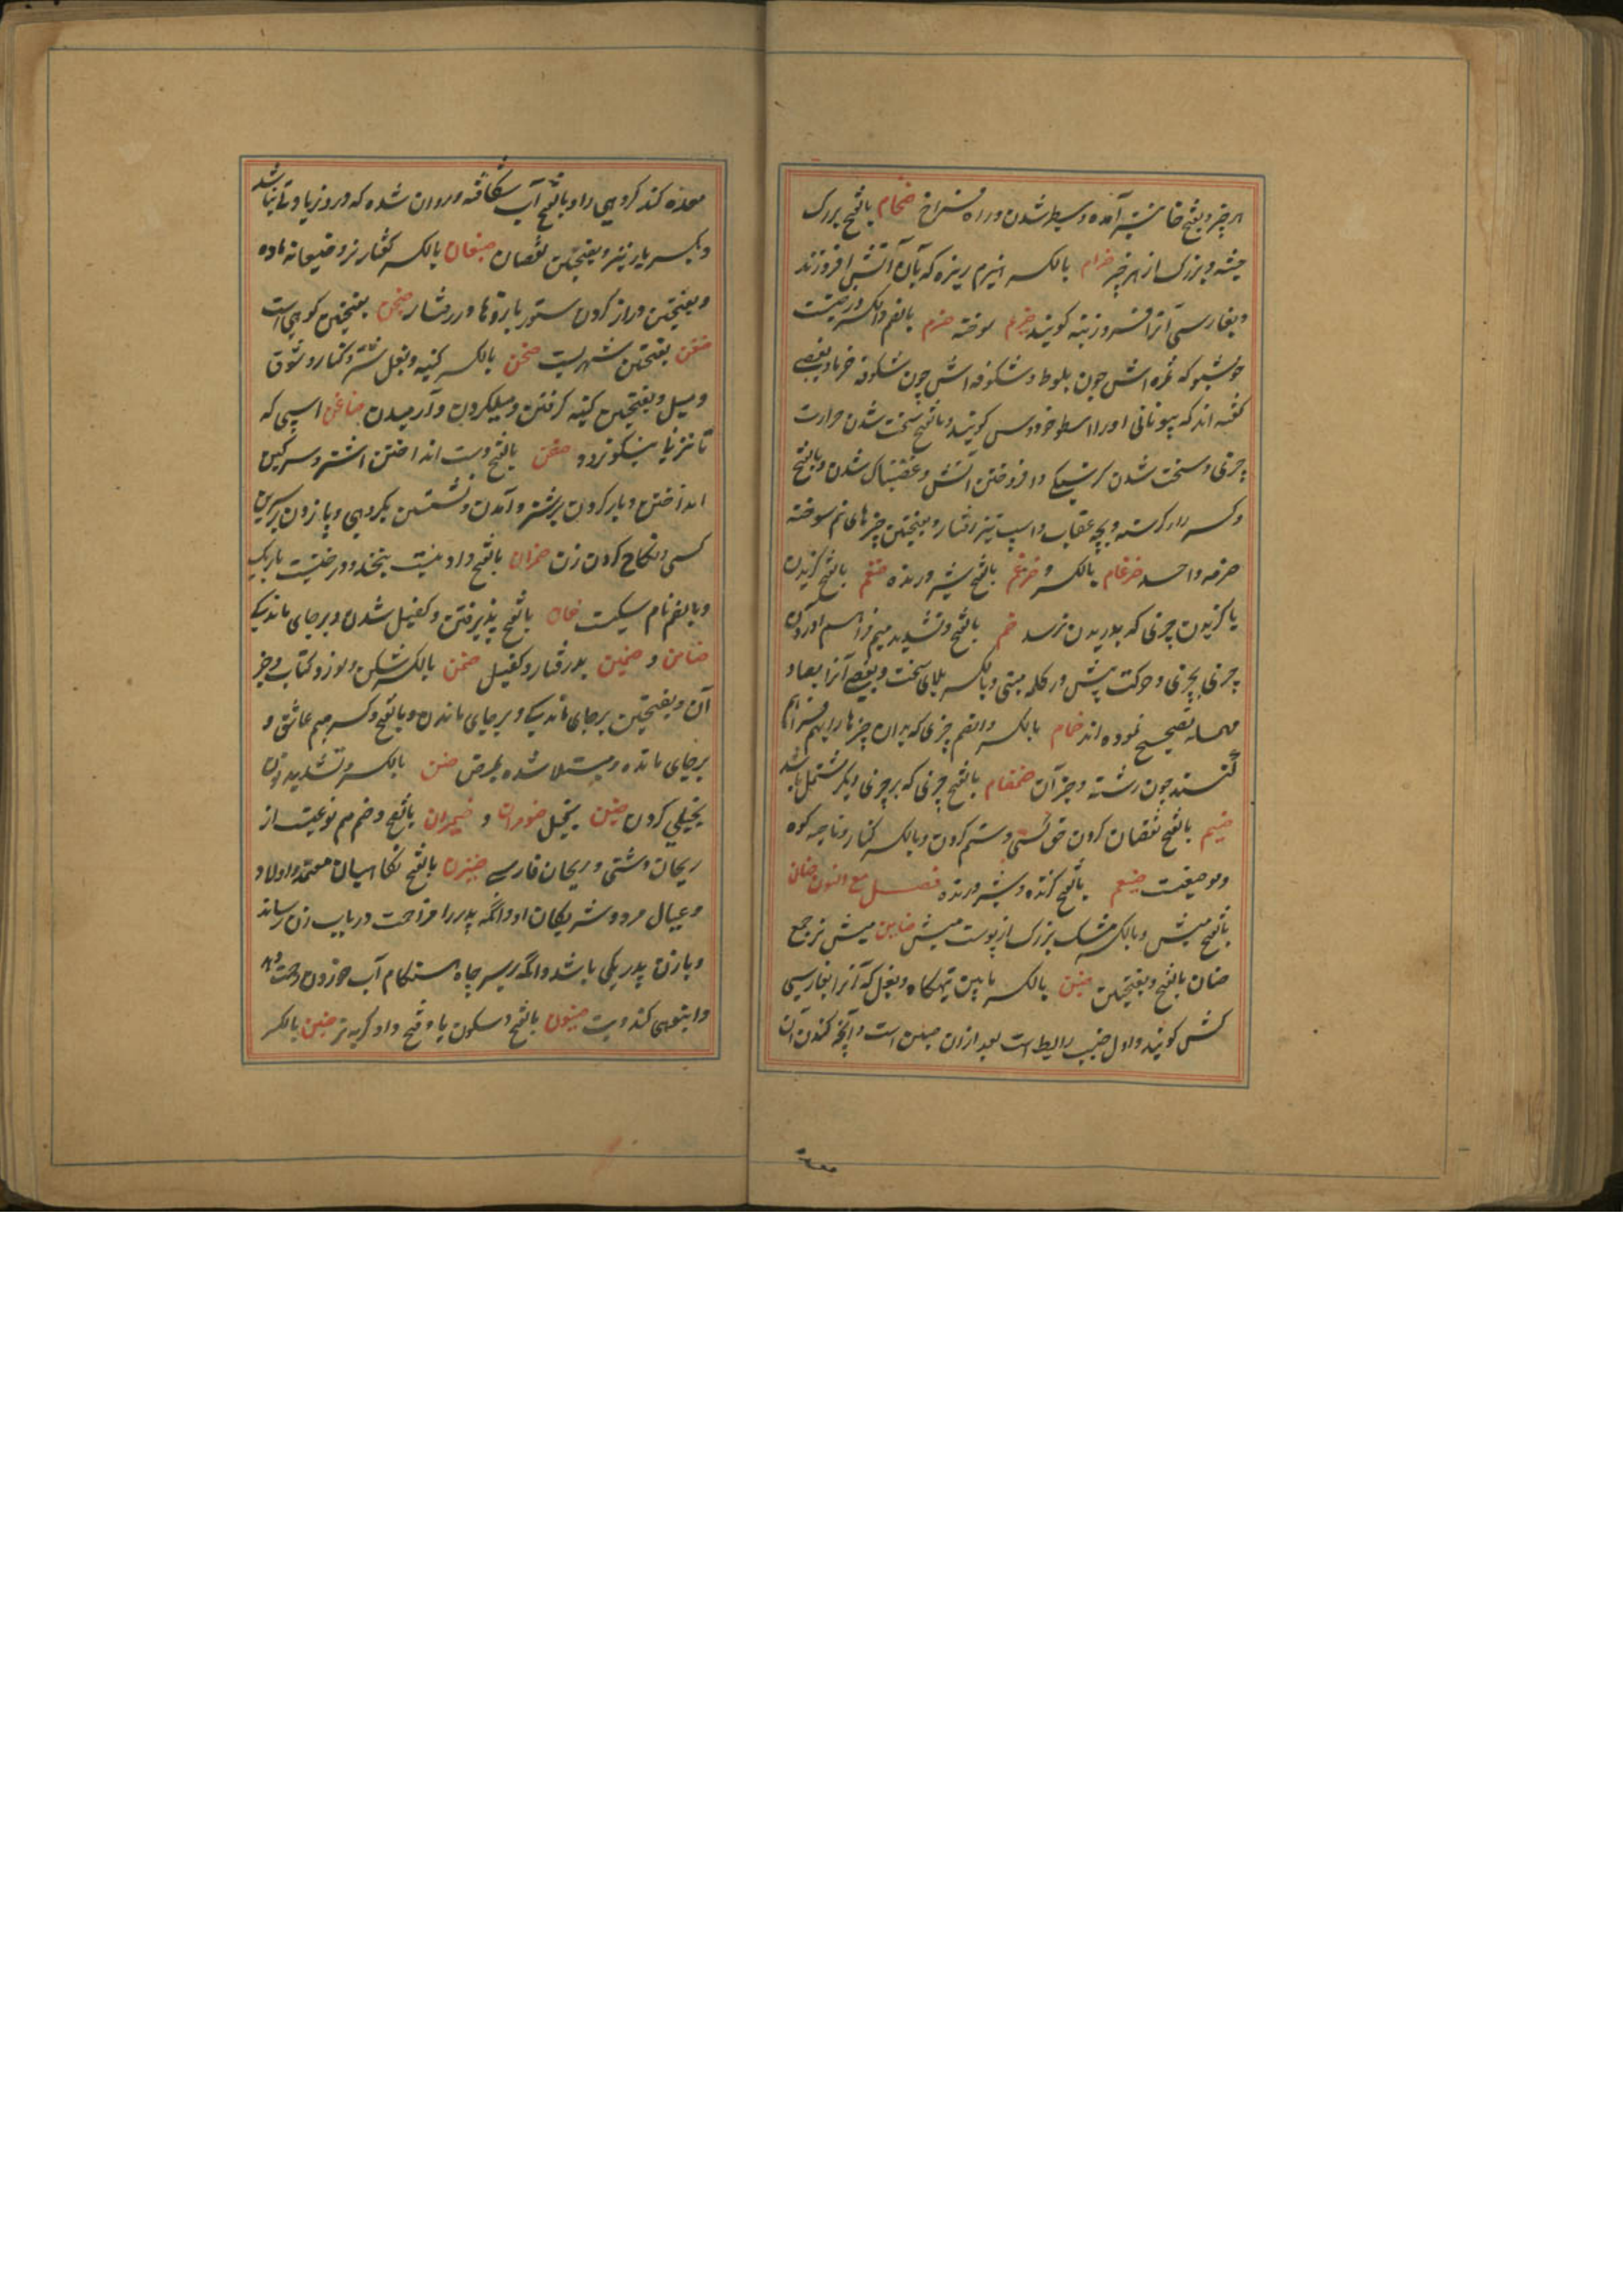 هر چیز و بفتح خا نیز آمده و سطبر شدن و راه فراخ ضخام بالفتح بزرگ
جثه و بزرگ از هر چیز ضرام بالکسر هیزم ریزه که بآن آتش افروزند
و بفارسی آنرا فروزینه کویند ضرم سوخته ضرم بالضم و الکسر درختیست
خوشبو که ثمره اش چون بلوط و شکوفه اش چون شکوفه خرما و بعضی
گفته اند که بیونانی اورا اسطوخودوس کویند و بالفتح سخت شدن حرارت
چیزی و سخت شدن کرسنکی و افروختن آتش و غضبناک شدن و بالفتح
و کسر را کرسنه و بچه عقاب و اسپ تیز رفتار و بفتحتین چیزهای نیم سوخته
ضرمه واحد ضرغام بالکسر و ضرغم بالفتح شیر درنده ضغم بالفتح کزیدن
یا کزیدن چیزی که بدریدن نرسد ضم بالفتح و تشدید میم فراهم آوردن
چیزی بچیزی و حرکت پیش در کلمه مبنی و بالکسر بلای سخت و بعضی آنرا بصاد
مهمله تصحیح نموده اند ضمام بالکسر و الضم چیزی که بدان چیزها را بهم فراهم
کنند چون رشته و جز آن ضمضام بالفتح چیزی که بر چیزی دیگر مشتمل باشد
ضیم بالفتح نقصان کردن حق کسی و ستم کردن و بالکسر کنار و ناحیه کوه
و موضعیست ضیغم بالفتح کزنده و شیر درنده فصل مع النون ضان
بالفتح میش و بالکسر مشک بزرگ از پوست میش ضاین میش نر جمع
ضان بالفتح و بفتحتین ضبن بالکسر ما بین تهیکاه و بغل که آنرا بفارسی
کش کویند و اول جنب را ابط است بعد ازان ضبن است و آنچه کندن آن
معذه کند کروهی را و بالفتح آب شکافته و روان شده که درو زیادتی نباشد
و بکسر با نیز و بفتحتین نقصان ضبعان بالکسر کفتار نر و ضبعانه ماده
و بفتحتین دراز کردن ستور بازوها در رفتار ضجن بفتحتین کوهی است
ضفن بفتحتین شهریست ضغن بالکسر کینه و بغل شتر و کنار و شوق
و میل و بفتحتین کینه کرفتن و میل کردن و آرمیدن ضاغن اسپی که
تا نزنی نیکو نرود ضفن بالفتح دست انداختن اشتر و سرکین
انداختن و بار کردن بر شتر و آمدن و نشستن بکروهی و پا زدن بر سرین
کسی و نکاح کردن زن ضمران بالفتح
و بالضم نام سکیست ضمان بالفتح پذیرفتن و کفیل شدن و بر جای ماندکی
ضامن و ضمین پذرفتار و کفیل ضمن بالکسر شکن و نورد کتاب و جز
آن و بفتحتین بر جای ماندکی و بر جای ماندن و بالفتح و کسر میم عاشق و
بر جای مانده و مبتلا شده بمرض ضن بالکسر و تشدید نون
بخیلی کردن ضنین بخیل ضومران و ضیمران بالفتح و ضم میم نوعیست از
ریحان دشتی و ریحان فارسی ضیزن بالفتح نکاهبان معتمد و اولاد
و عیال مرد و شریکان او و آنکه پدر را مزاحمت در باب زن رساند
و با زن پدر یکی باشد و آنکه بر سر چاه هنکام آب خوردن
و انبوهی کند و بت ضیون بالفتح و سکون یا و فتح واو کربه نر ضنین بالکسر